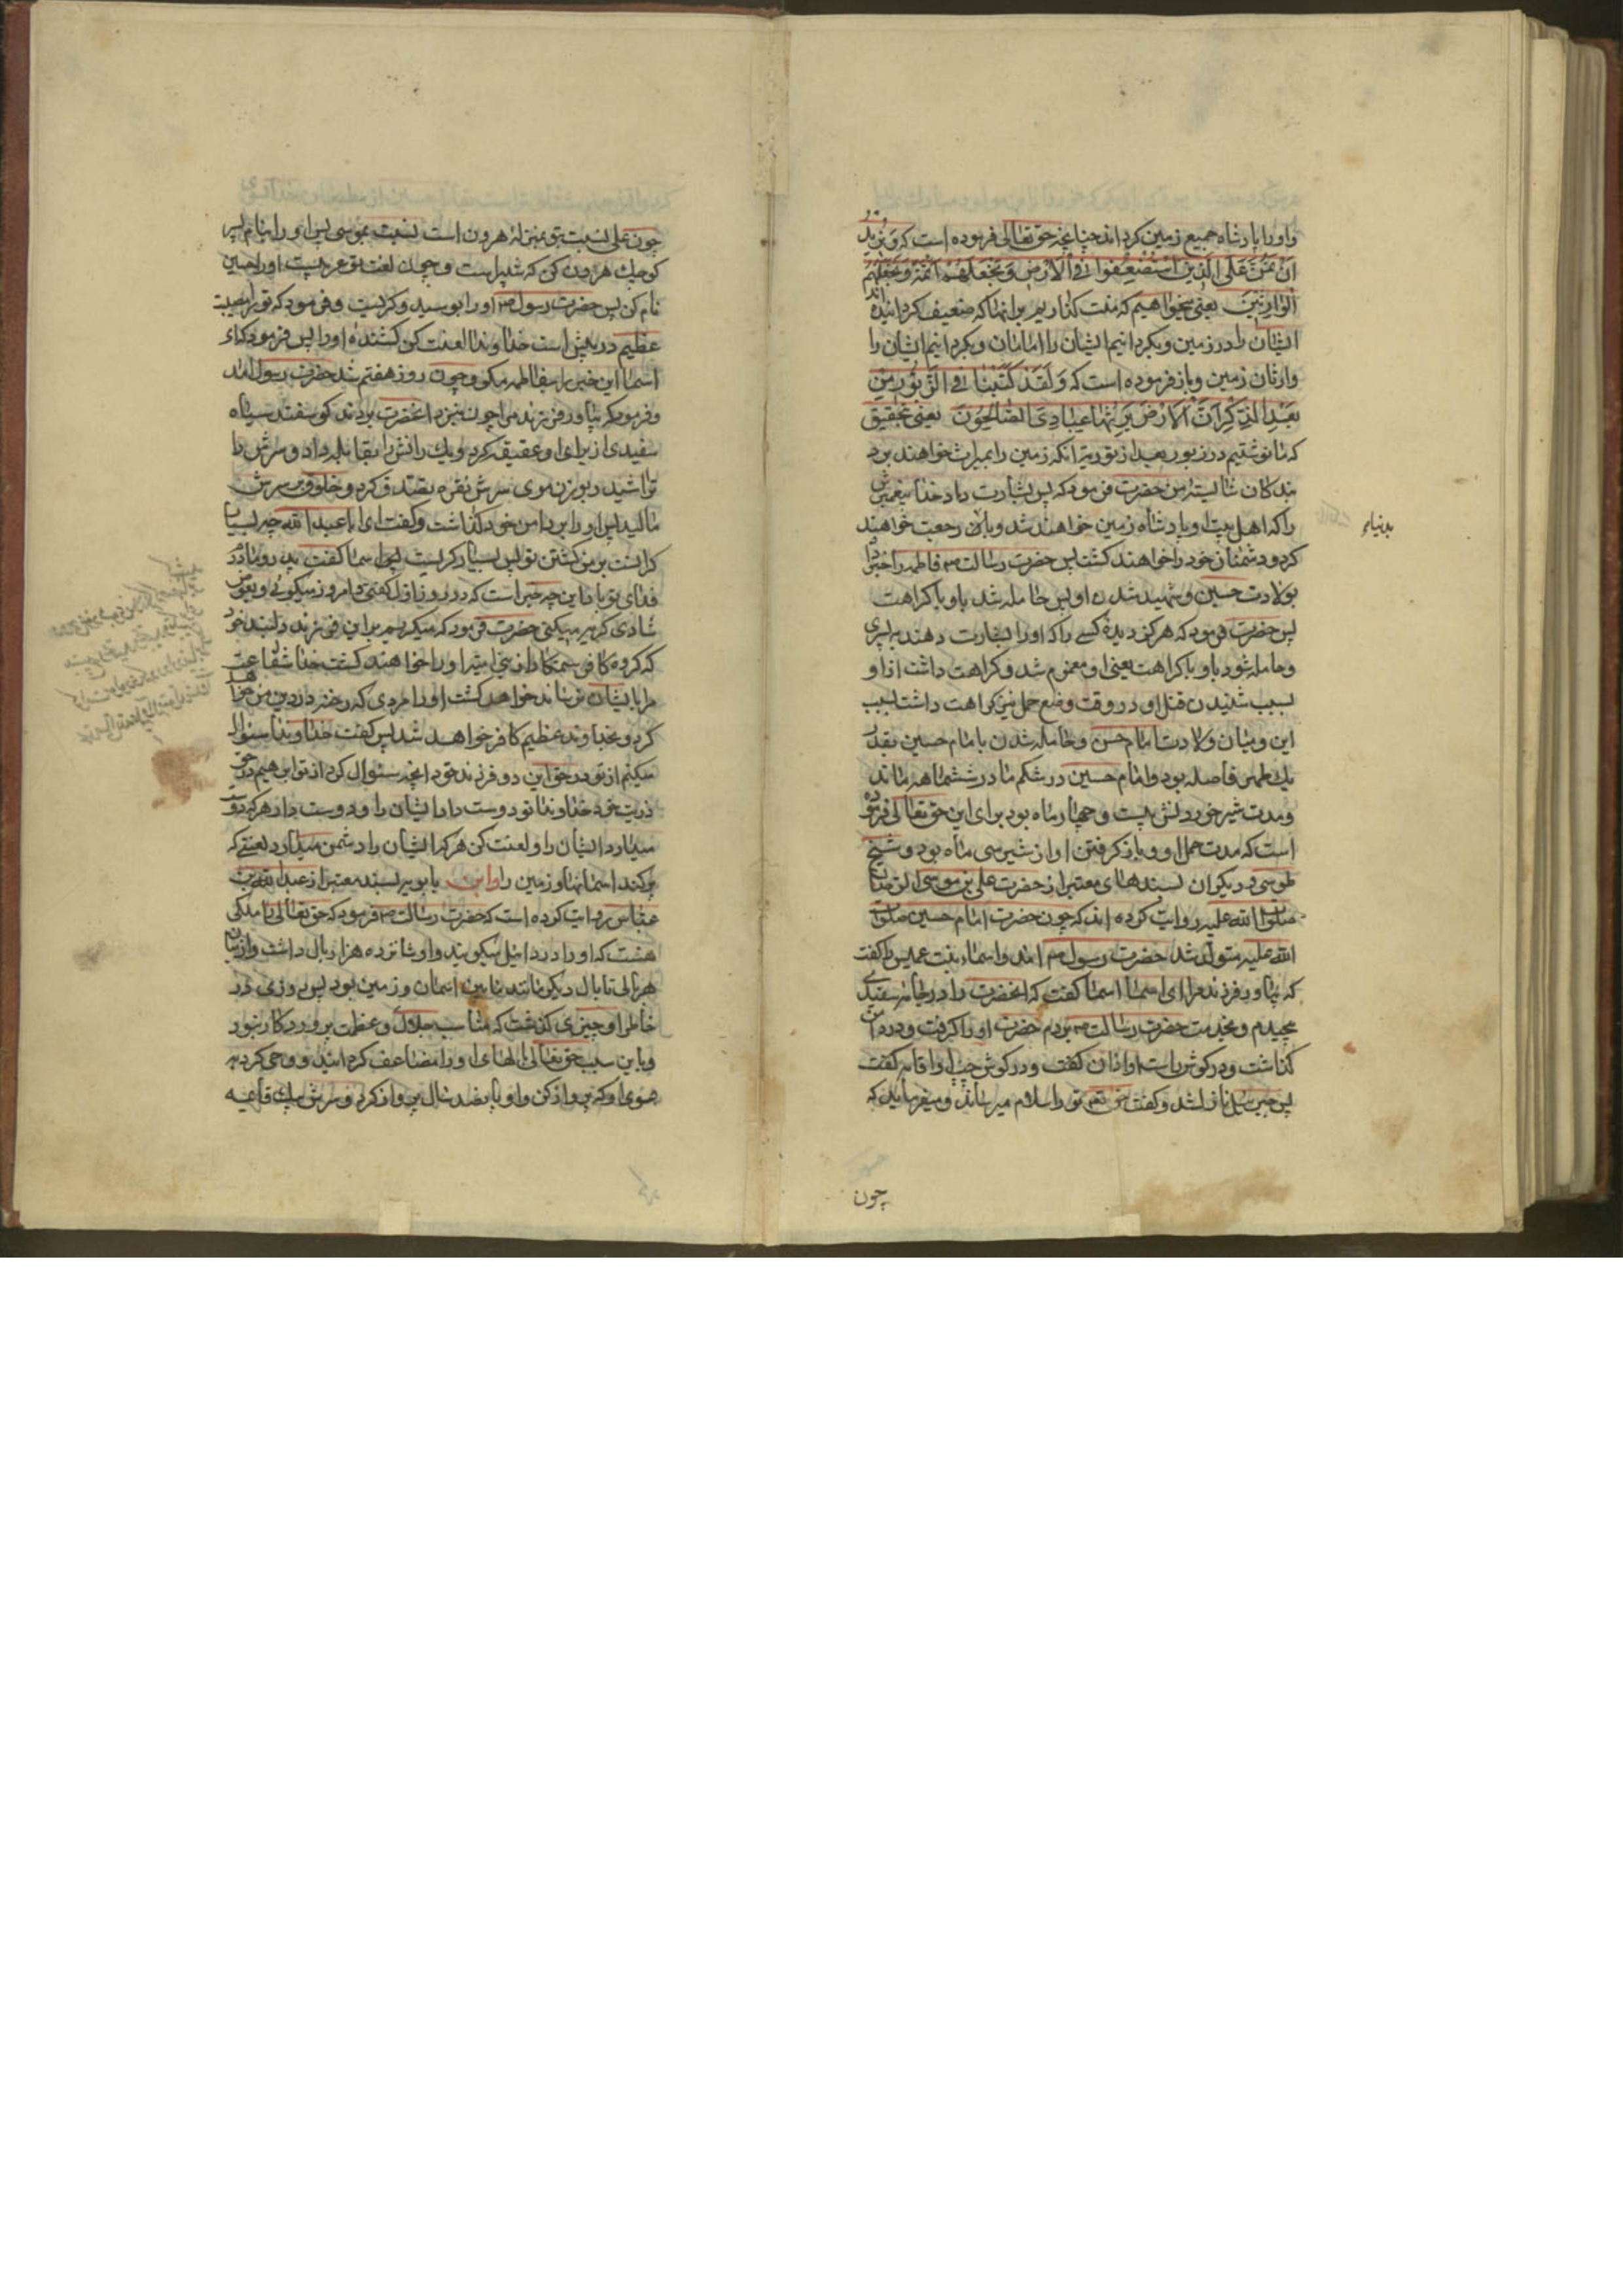 واورا بادشاه جمیع زمین کرداند چنانچه حق تعالی فرموده است که وَنُرِیدُ
اَنْ نَمُنَّ عَلَی الَّذینَ اسْتُضْعِفُوا فِی الْاَرْضِ وَنَجْعَلَهُمْ اَئِمَّةً وَنَجْعَلَهُمُ
الْوارِثینَ یعنی میخواهیم که منت کذاریم بر انها که ضعیف کردانیده اند
ایشان را در زمین و بکردانیم ایشان را امامان و بکردانیم ایشان را
وارثان زمین و باز فرموده است که وَلَقَدْ کَتَبْنا فِی الزَّبُورِ مِنْ
بَعْدِ الذِّکْرِ اَنَّ الْاَرْضَ یَرِثُها عِبادِیَ الصّالِحُونَ یعنی بتحقیق
که ما نوشتیم در زبور بعد از توریة انکه زمین را بمیراث خواهند برد
بندکان شایسته من حضرت فرمود که پس بشارت داد خدا پیغمبرش
را که اهل بیت او بادشاه زمین خواهند شد و باز رجعت خواهند
بدنیا
کرد و دشمنان خود را خواهند کشت پس حضرت رسالت ص فاطمه را خبر داد
بولادت حسین و شهید شدن او پس حامله شد باو با کراهت
پس حضرت فرمود که هرکز دیده کسی را که او را بشارت دهند به پسری
و حامله شود باو با کراهت یعنی او مغموم شد و کراهت داشت از او
بسبب شنیدن قتل او و در وقت وضع حمل نیز کراهت داشت بسبب
این و میان ولادت امام حسن و حامله شدن با امام حسین بقدر
یك طهر فاصله بود و امام حسین در شکم مادر شش ماه ماند
و مدت شیر خوردنش بیست و چهار ماه بود برای این حق تعالی فرموده
است که مدت حمل او و باز کرفتن او از شیر سی ماه بود و شیخ
طوسی و دیکران بسندهای معتبر از حضرت علی بن موسی الرضا
صلوات الله علیه روایت کرده اند که چون حضرت امام حسین صلوات
الله علیه متولد شد حضرت رسول ص امد و اسماء بنت عمیس را کفت
که بیاور فرزند مرا ای اسما اسما کفت که انحضرت را در جامه سفیدی
پیچیدم و بخدمت حضرت رسالت ص بردم حضرت او را کرفت و در دامن
کذاشت و در کوش راست او اذان کفت و در کوش چپ او اقامه کفت
پس جبرئیل نازل شد و کفت حق تعالی تو را سلام میرساند و میفرماید که
چون
چون علی نسبت بتو بمنزله هرون است نسبت بموسی پس او را بنام پسر
کوچك هرون کن که شبیر است و چون لغت تو عربیست او را حسین
نام کن پس حضرت رسول ص او را بوسید و کریست و فرمود که تو را مصیبت
عظیم در پیش است خداوندا لعنت کن کشنده او را پس فرمود که ای
اسما این خبر را بفاطمه مکو و چون روز هفتم شد حضرت رسول امد
و فرمود که بیاور فرزند مرا چون بنزد انحضرت بردند کوسفند سیاه
سفیدی از برای او عقیقه کرد و یك رانش را بقابله داد و سرش را
تراشید و بوزن موی سرش نقره تصدق کرد و خلوق بر سرش
مالید پس او را بر دامن خود کذاشت و کفت ای ابا عبد الله چه بسیار
کرانست بر من کشتن تو پس بسیار کریست پس اسما کفت پدر و مادرم
فدای تو باد این چه خبر است که در روز اول کفتی و امروز میکوئی و بعوض
شادی کریه میکنی حضرت فرمود که میکریم بر این فرزند دلبند خود
که کروه کافر ستمکار از بنی امیه او را خواهند کشت خدا شفاعت
مرا بایشان نرساند خواهد کشت او را مردی که رخنه در دین من خواهد
کرد و بخداوند عظیم کافر خواهد شد پس کفت خداوندا سئوال
میکنم از تو در حق این دو فرزند خود انچه سئوال کرد از تو ابرهیم در حق
ذریت خود خداوندا تو دوست دار ایشان را و دوست دار هرکه دوست
میدارد ایشان را و لعنت کن هرکه ایشان را دشمن میدارد لعنتی که
پر کند اسمانها و زمین را و ابن بابویه بسند معتبر از عبد الله بن
عباس روایت کرده است که حضرت رسالت ص فرمود که حق تعالی را ملکی
هست که او را دردائیل میکویند و او شانزده هزار بال داشت و از بال
هر بالی تا بال دیکر مانند مابین اسمان و زمین بود پس روزی در
خاطر او چیزی کذشت که مناسب جلال و عظمت پروردکار نبود
و باین سبب حق تعالی بالهای او را مضاعف کردانید و وحی کرد به
سوی او که پرواز کن و او پانصد سال پرواز کرد و سرش بیك قایمه